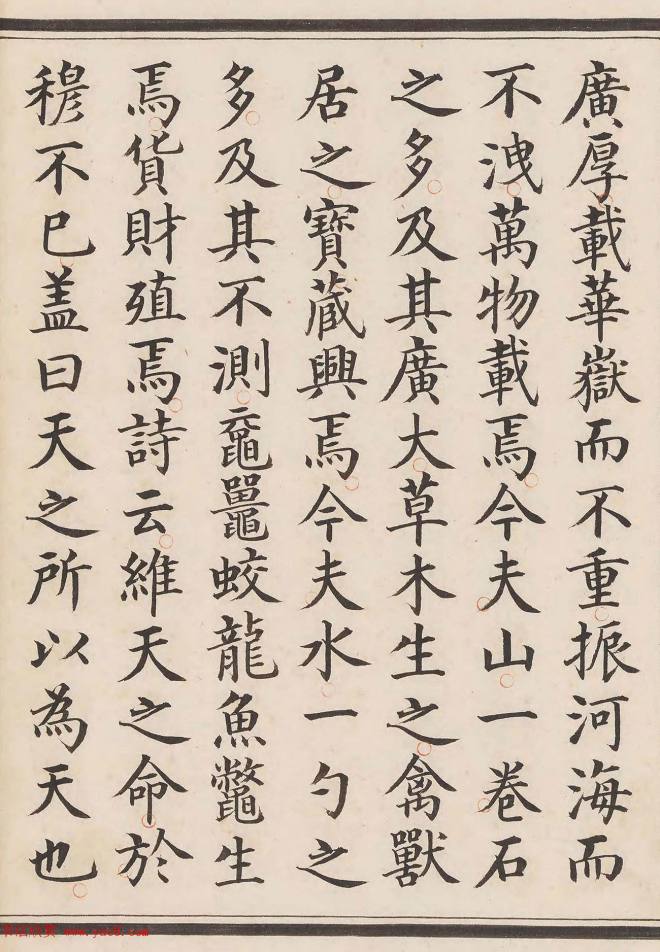 廣厚載華嶽而不重振河海而
不洩萬物載焉今夫山一卷石
之多及其廣大草木生之禽獸
居之寶藏興焉今夫水一勺之
多及其不測黿鼉蛟龍魚鼈生
焉貨財殖焉詩云維天之命於
穆不已盖曰天之所以為天也